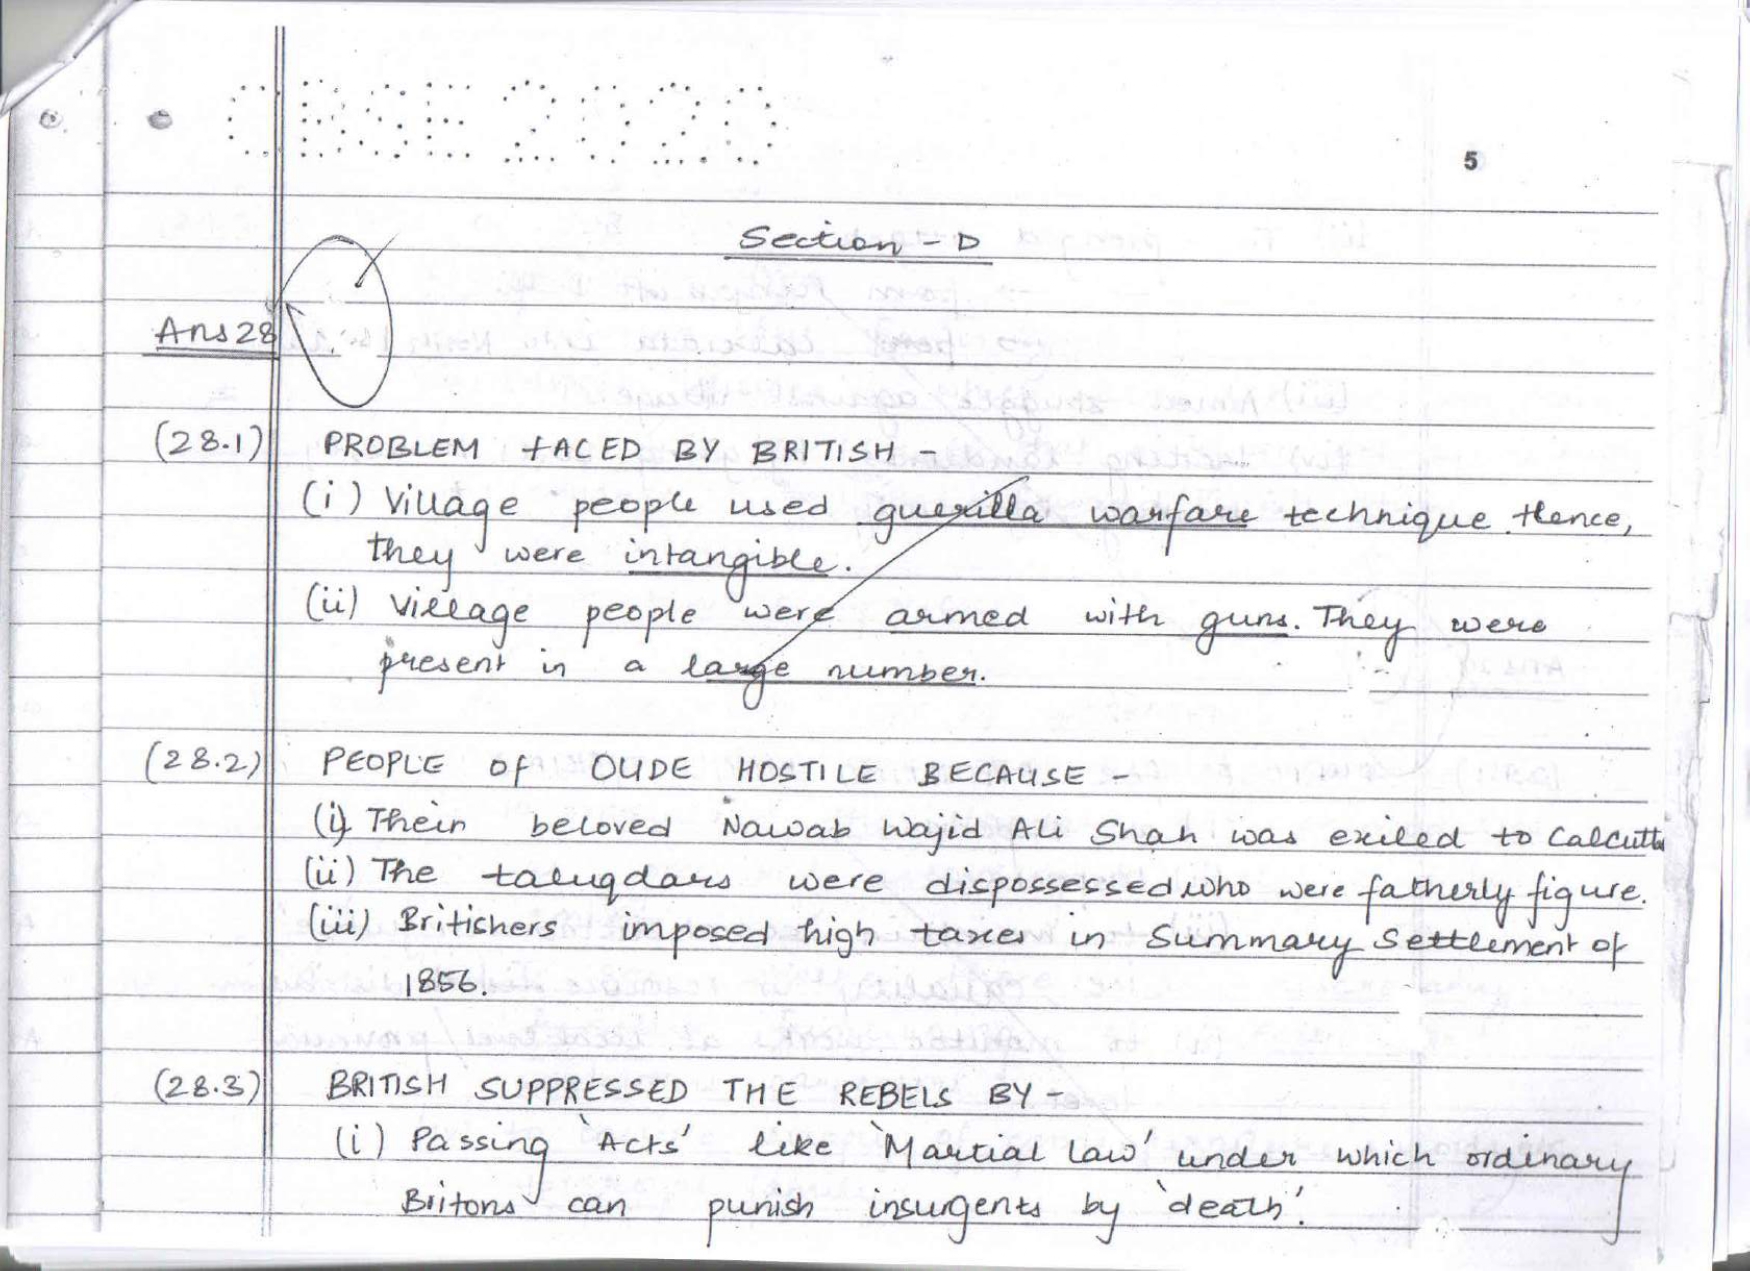 CBSE 2020
5
Section - D
Ans 28
(28.1) PROBLEM FACED BY BRITISH -
(i) Village people used guerilla warfare technique. Hence,
they were intangible.
(ii) Village people were armed with guns. They were
present in a large number.
(28.2) PEOPLE OF OUDE HOSTILE BECAUSE -
(i) Their beloved Nawab Wajid Ali Shah was exiled to Calcutta
(ii) The taluqdars were dispossessed who were fatherly figure.
(iii) Britishers imposed high taxes in Summary Settlement of
1856.
(28.3) BRITISH SUPPRESSED THE REBELS BY -
(i) Passing 'Acts' like 'Martial law' under which ordinary
Britons can punish insurgents by 'death'.